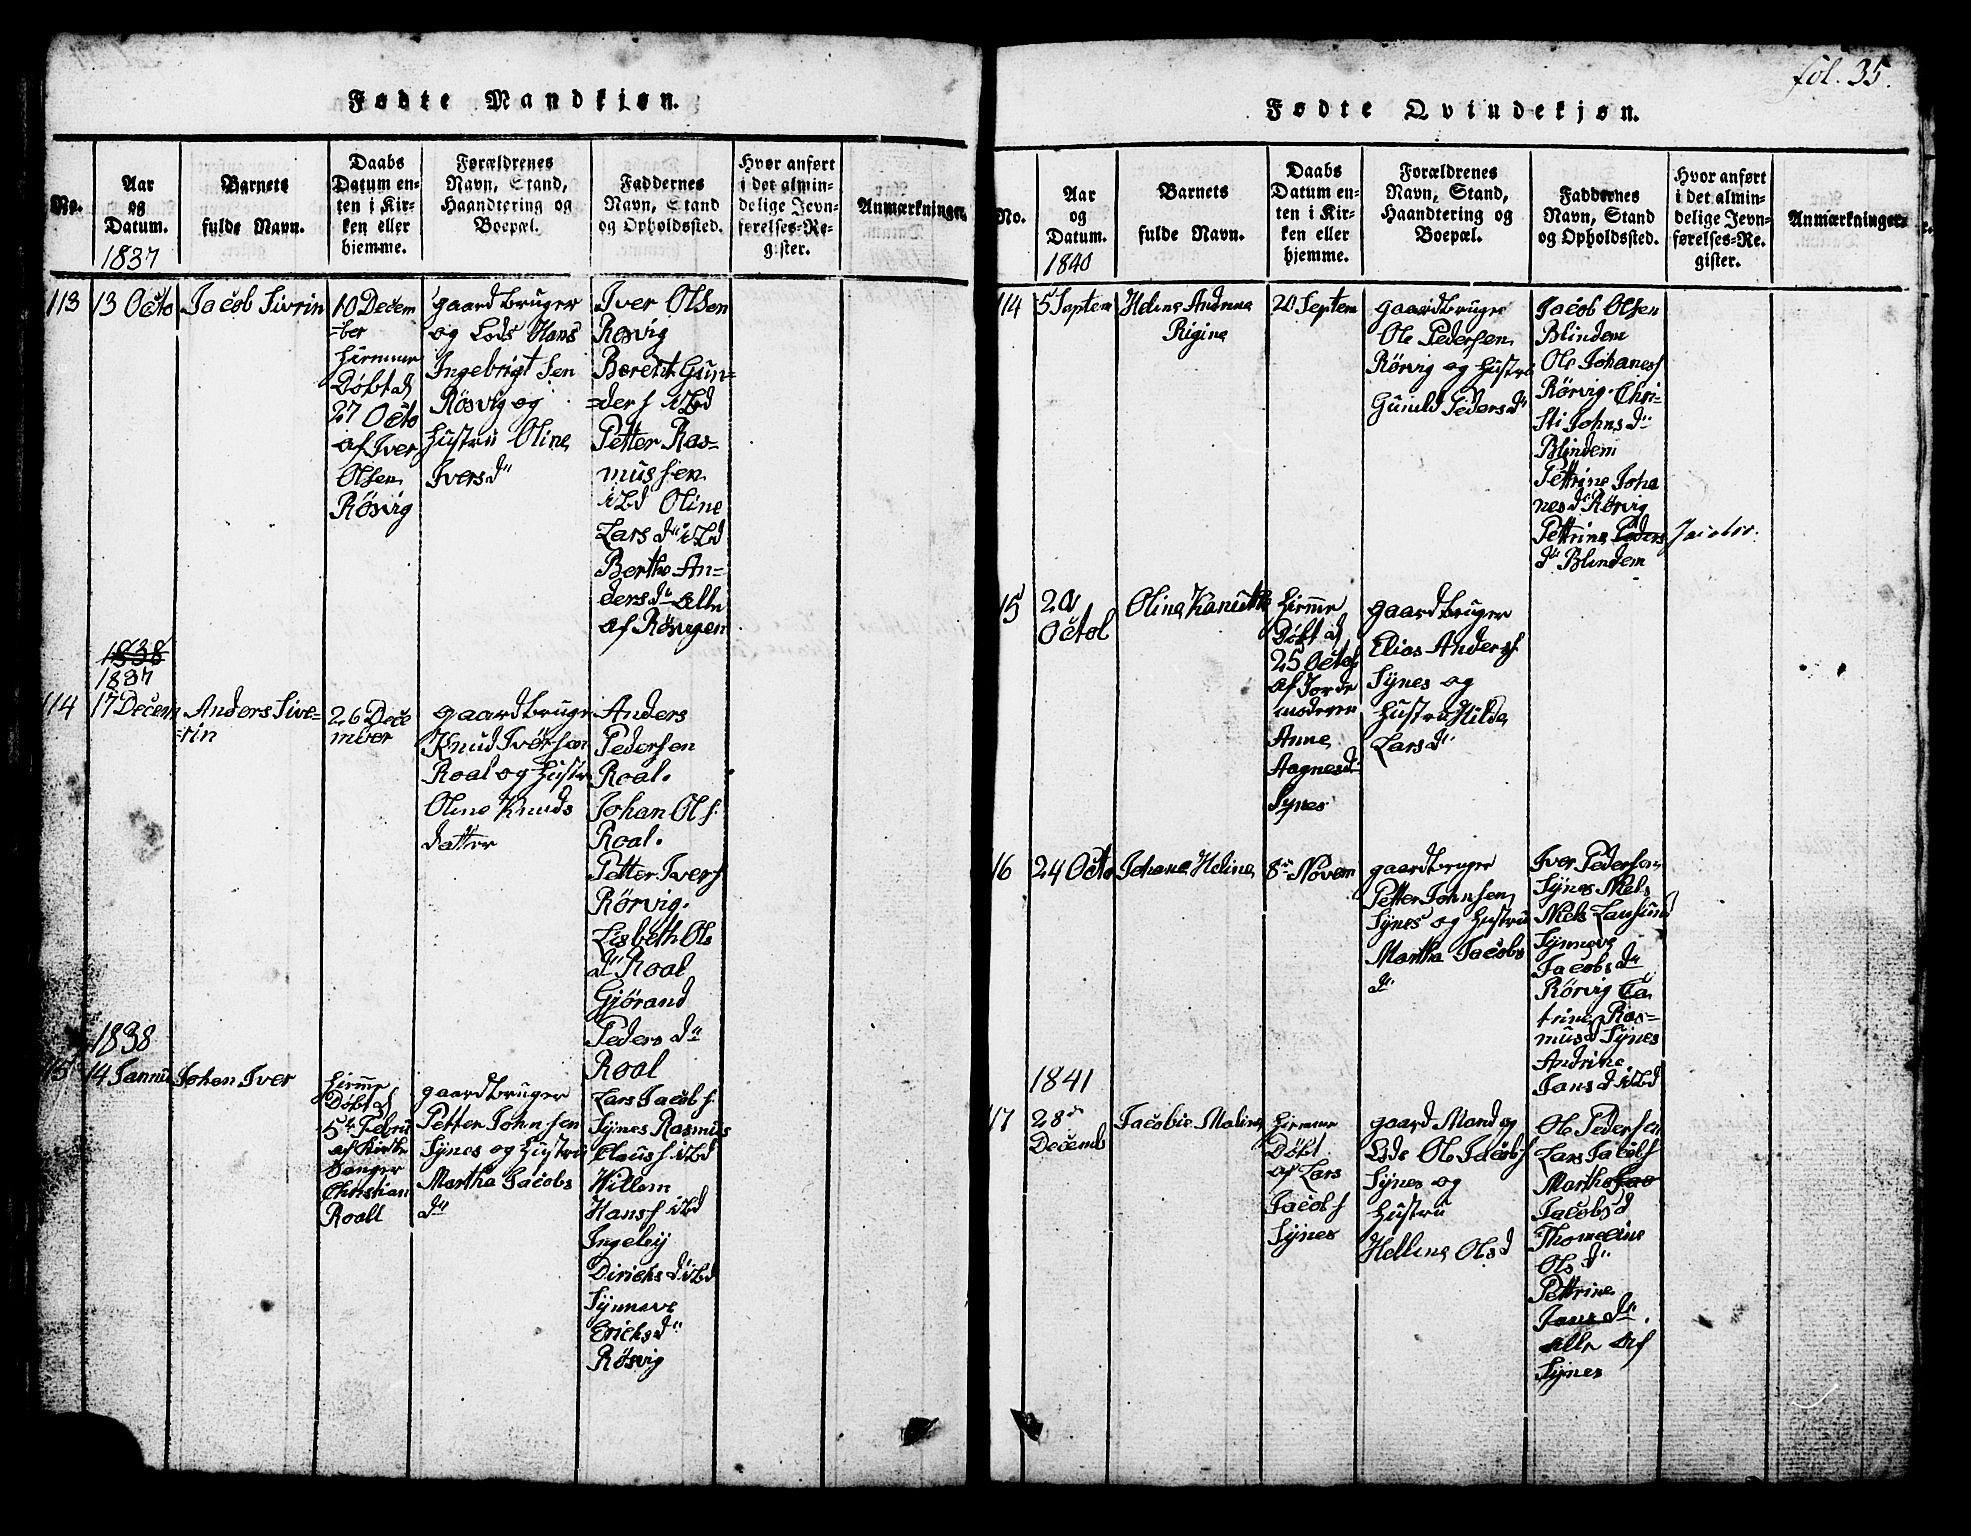 fol. 35.
Fødte Mandkjøn.
No.
Aar
og
Datum.
1837
Barnets
fulde Navn.
Daabs
Datum en-
ten i Kir-
ken eller
hjemme.
Forældrenes
Navn, Stand,
Haandtering og
Boepæl.
Faddernes
Navn, Stand
og Opholdssted.
Hvor anført
i det almin-
delige Jevn-
førelses-Re-
gister.
Anmærkninger.
113
13 Octo
Jacob Sivrin
10 Decem
=ber
Hiemme
Døbt d
27 Octo
af Iver
Olsen
Røsvig
gaardbruger
og Lods Hans
Ingebrigtsen
Røsvig og
Hustru Oline
Ivers d
Iver Olsen
Røsvig
Berent Gun=
=ders ibd
Petter Ras=
mussen
ibd Oline
Lars d ibd
Berthe An=
ders d alle
af Røsvigen
1838
1837
114
17 Decem
Anders Sive=
=rin
26 Dece
mber
gaardbruger
Knud Iversen
Roal og Hustr
Oline Knuds
datter
Anders
Pedersen
Roal.
Johan Ols
Roal.
Petter Ivers
Rørvig.
Lisbeth Ols
d Roal
Gjørand
Peders d
Roal
1838
115
14 Januu
Johan Iver
Hiemme
Døbt d
5te Febru
af Kirke
sanger
Christian
Roall
gaardbruger
Petter Johnsen
Synes og Hustru
Martha Jacobs
d
Lars Jacobs
Synes Rasmus
Claus s ibd
Willem
Hans s ibd
Ingeley
Diricks d ibd
Synneve
Ericks d
Røsvig
Fødte Qvindekjøn.
No.
Aar
og
Datum.
1840
Barnets
fulde Navn.
Daabs
Datum en-
ten i Kir-
ken eller
hjemme.
Forældrenes
Navn, Stand,
Haandtering og
Boepæl.
Faddernes
Navn, Stand
og Opholdssted.
Hvor anført
i det almin-
delige Jevn-
førelses-Re.
gister.
Anmærkninger.
114
5 Septem
Helene Andrina
Rigine
20 Septem
gaardbruger
Ole Pedersen
Rørvig og Hustru
Gunild Peders d
Jacob Olsen
Blindem
Ole Johaness
Rørvig. Chri-
sti Johns d
Blindem
Pettrine Joha
nes d Rørvig
Pettrine Peders
d Blindem
Jacobs.
15
20
Octob
Olina Kanutte
Hiemme
Døbt d
25 Octob
af Jorde
moderen
Anne
Aagnes d
Synes
gaardbruger
Elias Anders
Synes og
Hustru Hilde
Lars d
16
24 Octo
Johana Heline
8de Novem
gaardbruger
Petter Johnsen
Synes og Hustru
Martha Jacobs
d
Iver Pedersen
Synes Niels
Niels Lausund
Synneve
Jacobs d
Rørvig Ca
trine Ras=
mus d Synes
Andrine
Jans d ibd
1841
17
28de
Decemb
Jacobie Maline
Hiemme
Døbt
af Lars
Jacobs
Synes
gaard Mand og
Lods Ole Jacobs
Synes og
Hustru
Hellene Ols d
Ole Pedersen
Lars Jacobs
Martha Jac
Jacobs d
Thomeline
Ols d
Pettrine
Jans d
alle af
Synes